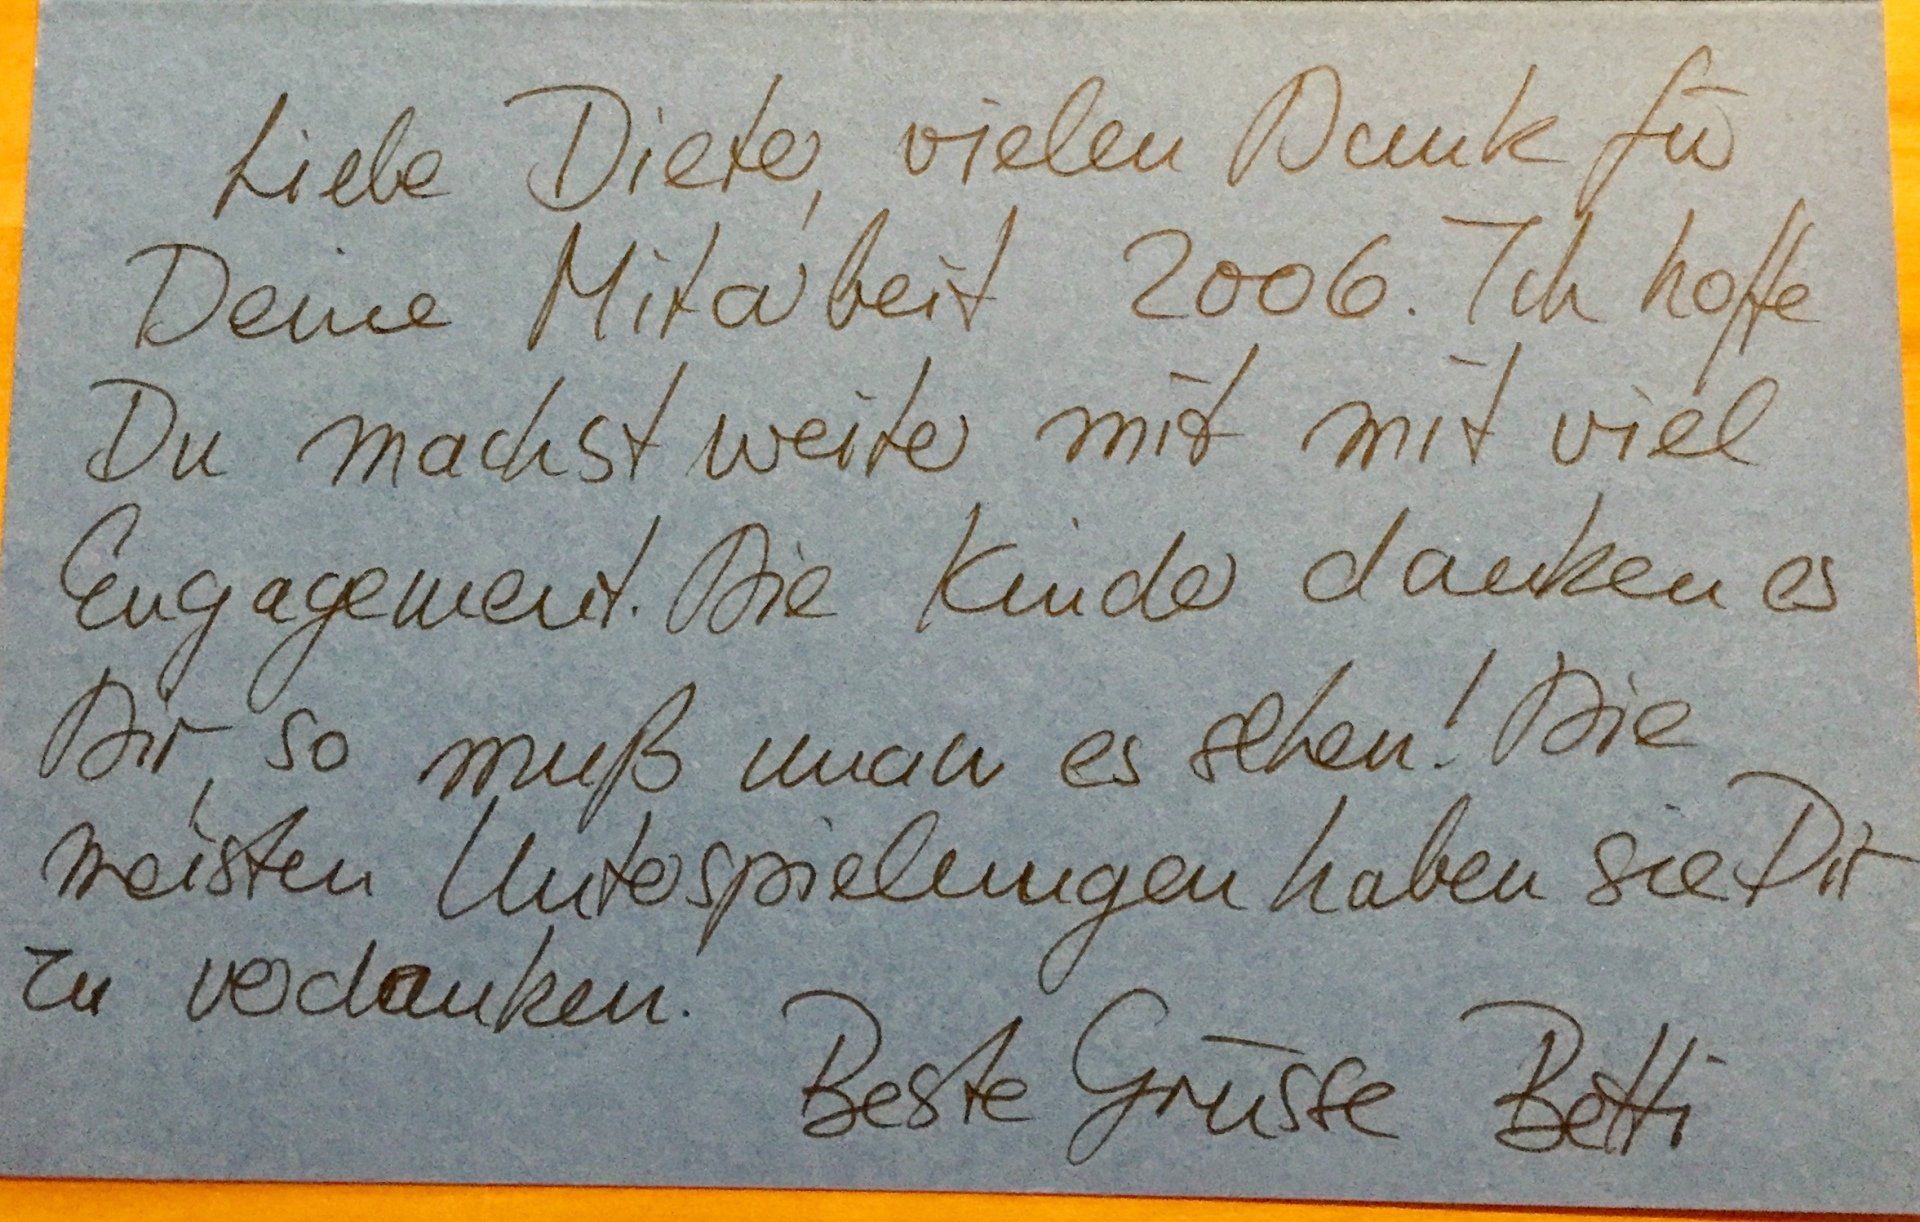 Lieber Dieter, vielen Dank für
Deine Mitarbeit 2006. Ich hoffe
Du machst weiter mit mit viel
Engagement. Die Kinder danken es
Dir, so muß man es sehen! Die
meisten Unterspielungen haben sie Dir
zu verdanken.
Beste Grüsse Betti